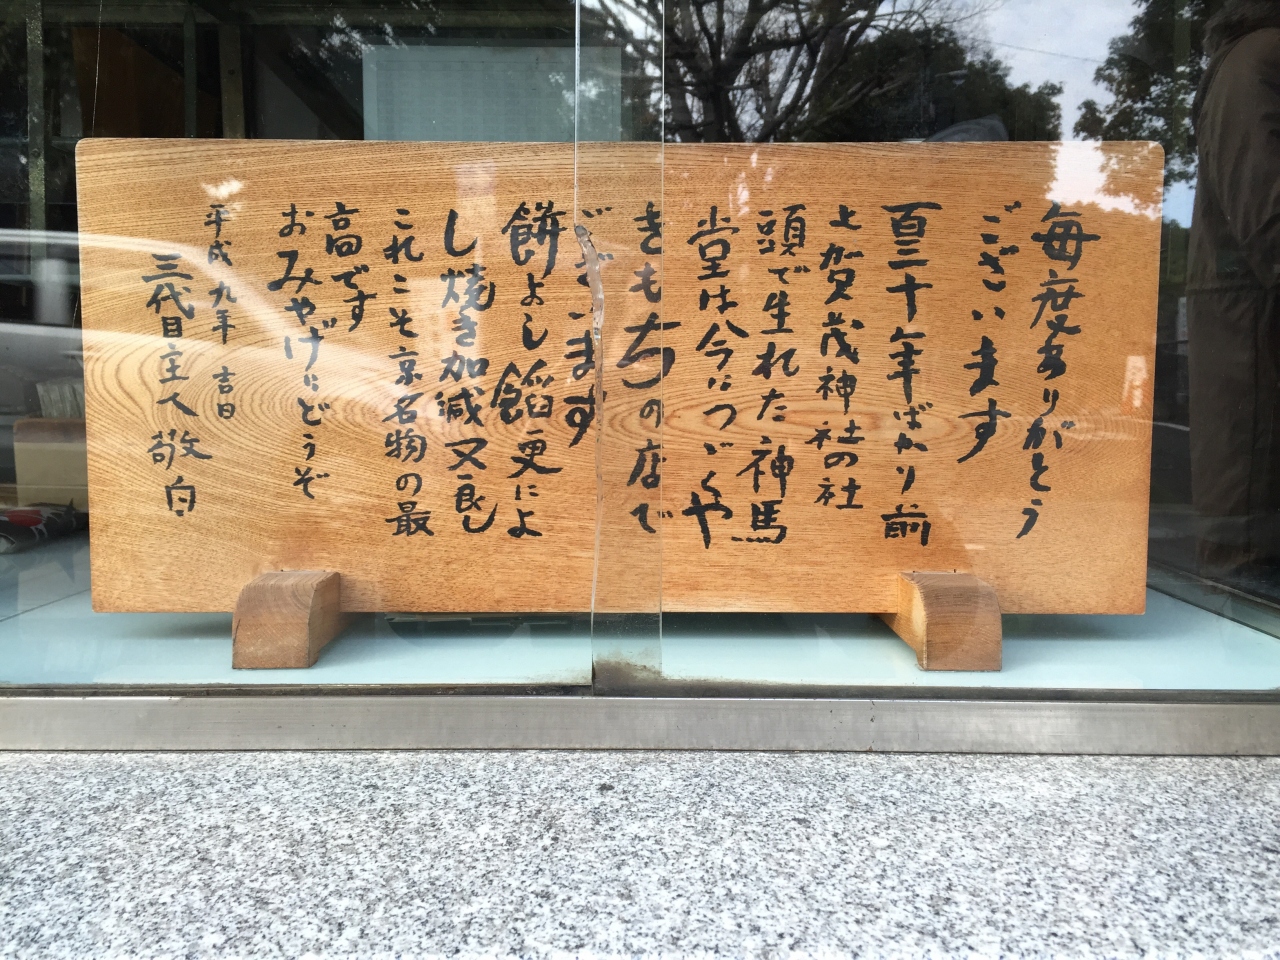 毎度ありがとう
ございます
百三十年ばかり前
上賀茂神社の社
頭で生れた神馬
堂は今につゞくや
きもちの店で
ございます
餅よし餡更によ
し焼き加減又良し
これこそ京名物の最
高です
おみやげにどうぞ
平成九年 吉日
三代目主人 敬白